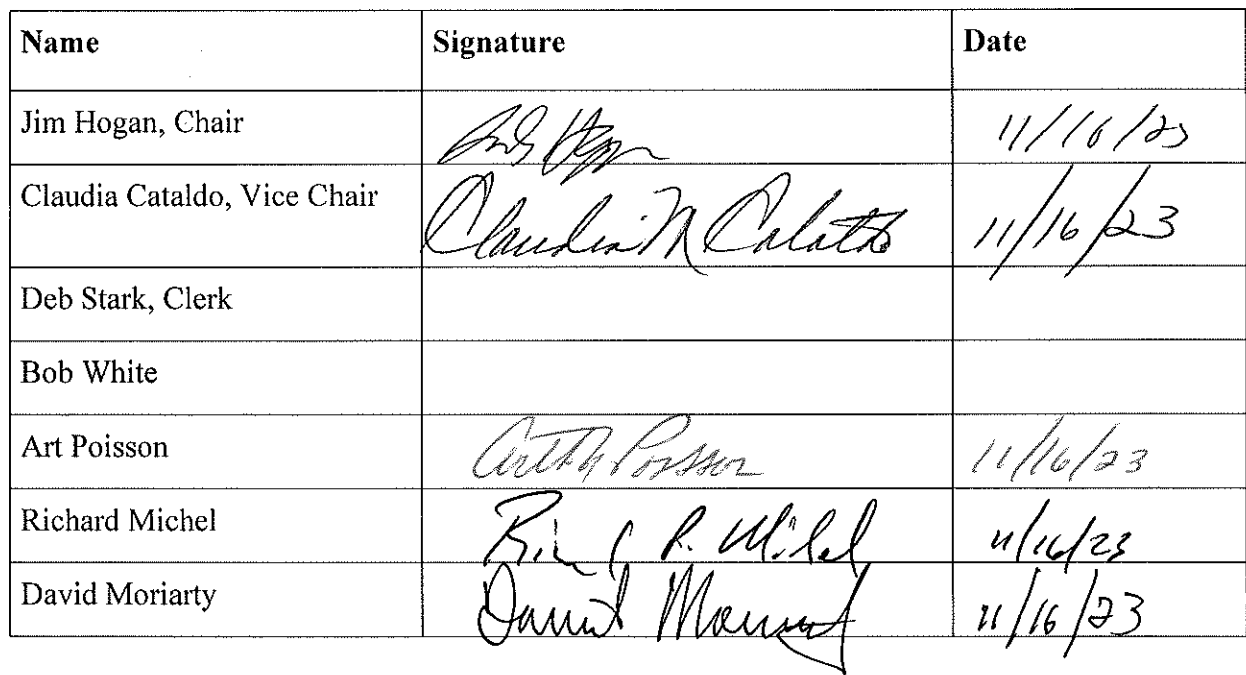 Name Signature Date
Jim Hogan, Chair 11/16/23
Claudia Cataldo, Vice Chair Claudia M Cataldo 11/16/23
Deb Stark, Clerk
Bob White
Art Poisson 11/16/23
Richard Michel R. Michel 11/16/23
David Moriarty David Moriarty 11/16/23